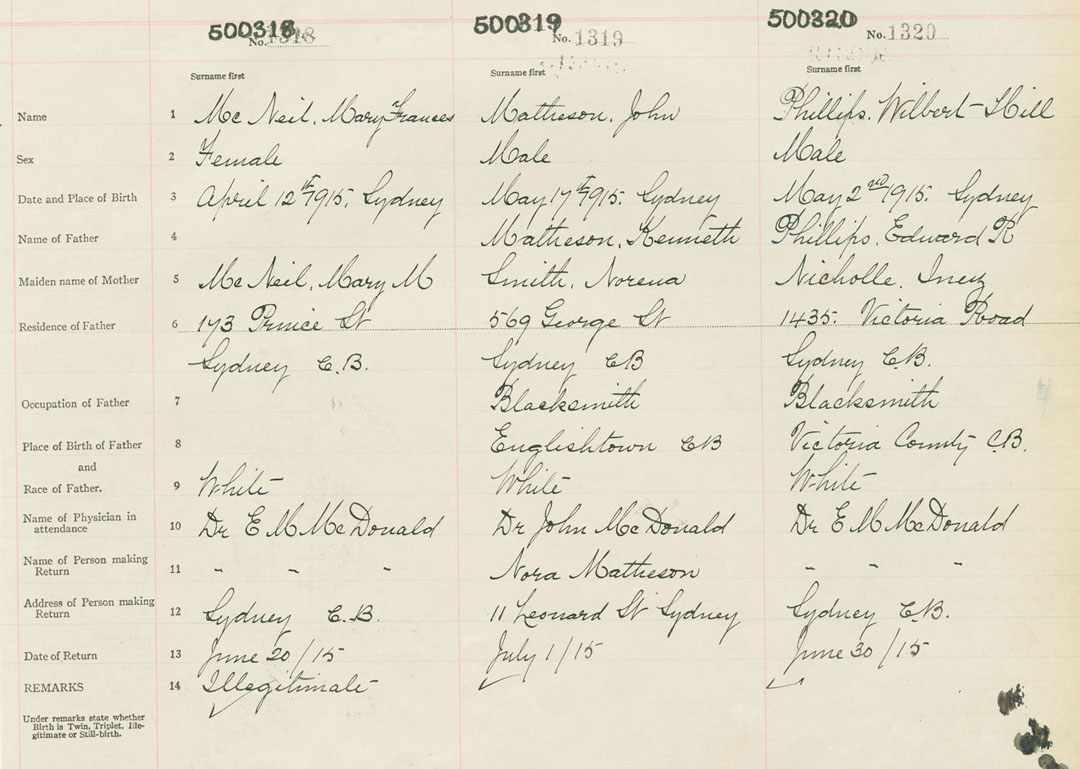 500318 500319 500320
No. 1318 No. 1319 No. 1320
Surname first Surname first Surname first
Name 1 Mc Neil, Mary Frances Matheson, John Phillips, Wilbert Hill
Sex 2 Female Male Male
Date and Place of Birth 3 April 12th 1915, Sydney May 17th 1915, Sydney May 2nd 1915, Sydney
Name of Father 4 Matheson, Kenneth Phillips, Edward R
Maiden name of Mother 5 Mc Neil, Mary M Smith, Norena Nicholle, Inez
Residence of Father 6 173 Prince St 569 George St 1435 Victoria Road
Sydney C.B. Sydney CB Sydney C.B.
Occupation of Father 7 Blacksmith Blacksmith
Place of Birth of Father 8 Englishtown CB Victoria County C.B.
and
Race of Father. 9 White White White
Name of Physician in attendance 10 Dr E M McDonald Dr John McDonald Dr E M McDonald
Name of Person making Return 11 " " " Nora Matheson " " "
Address of Person making Return 12 Sydney C.B. 11 Leonard St Sydney Sydney C.B.
Date of Return 13 June 20/15 July 1/15 June 30/15
REMARKS 14 Illegitimate
Under remarks state whether
Birth is Twin, Triplet, Ille-
gitimate or Still-birth.